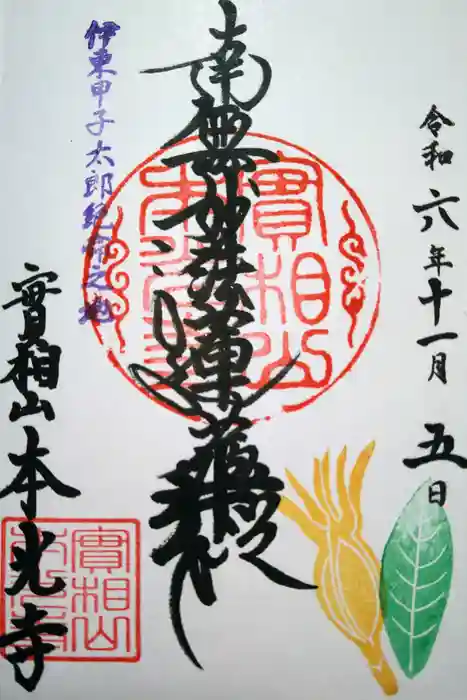 令和六年十一月五日
南無妙法蓮華経
實相山
本光寺
伊東甲子太郎絶命之地
實相山本光寺
實相山
本光寺